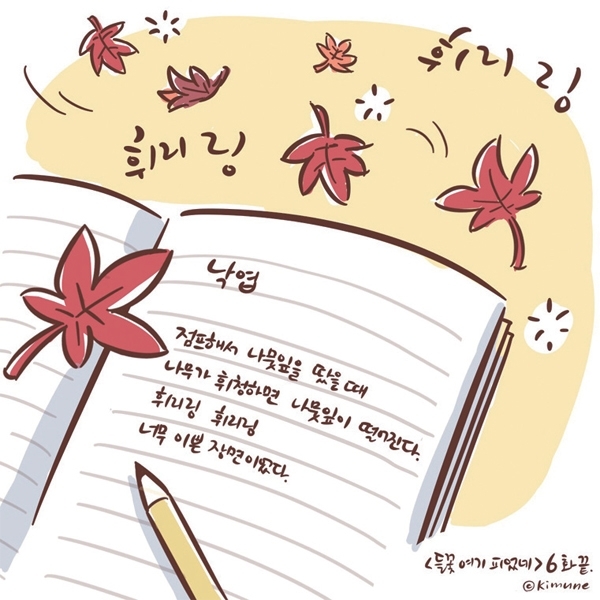 휘리링
휘리링
낙엽
점프해서 나뭇잎을 땄을 때
나무가 휘청하면 나뭇잎이 떨어진다.
휘리링 휘리링
너무 이쁜 장면이었다.
<들꽃 여기 피었네> 6화 끝.
©kimune